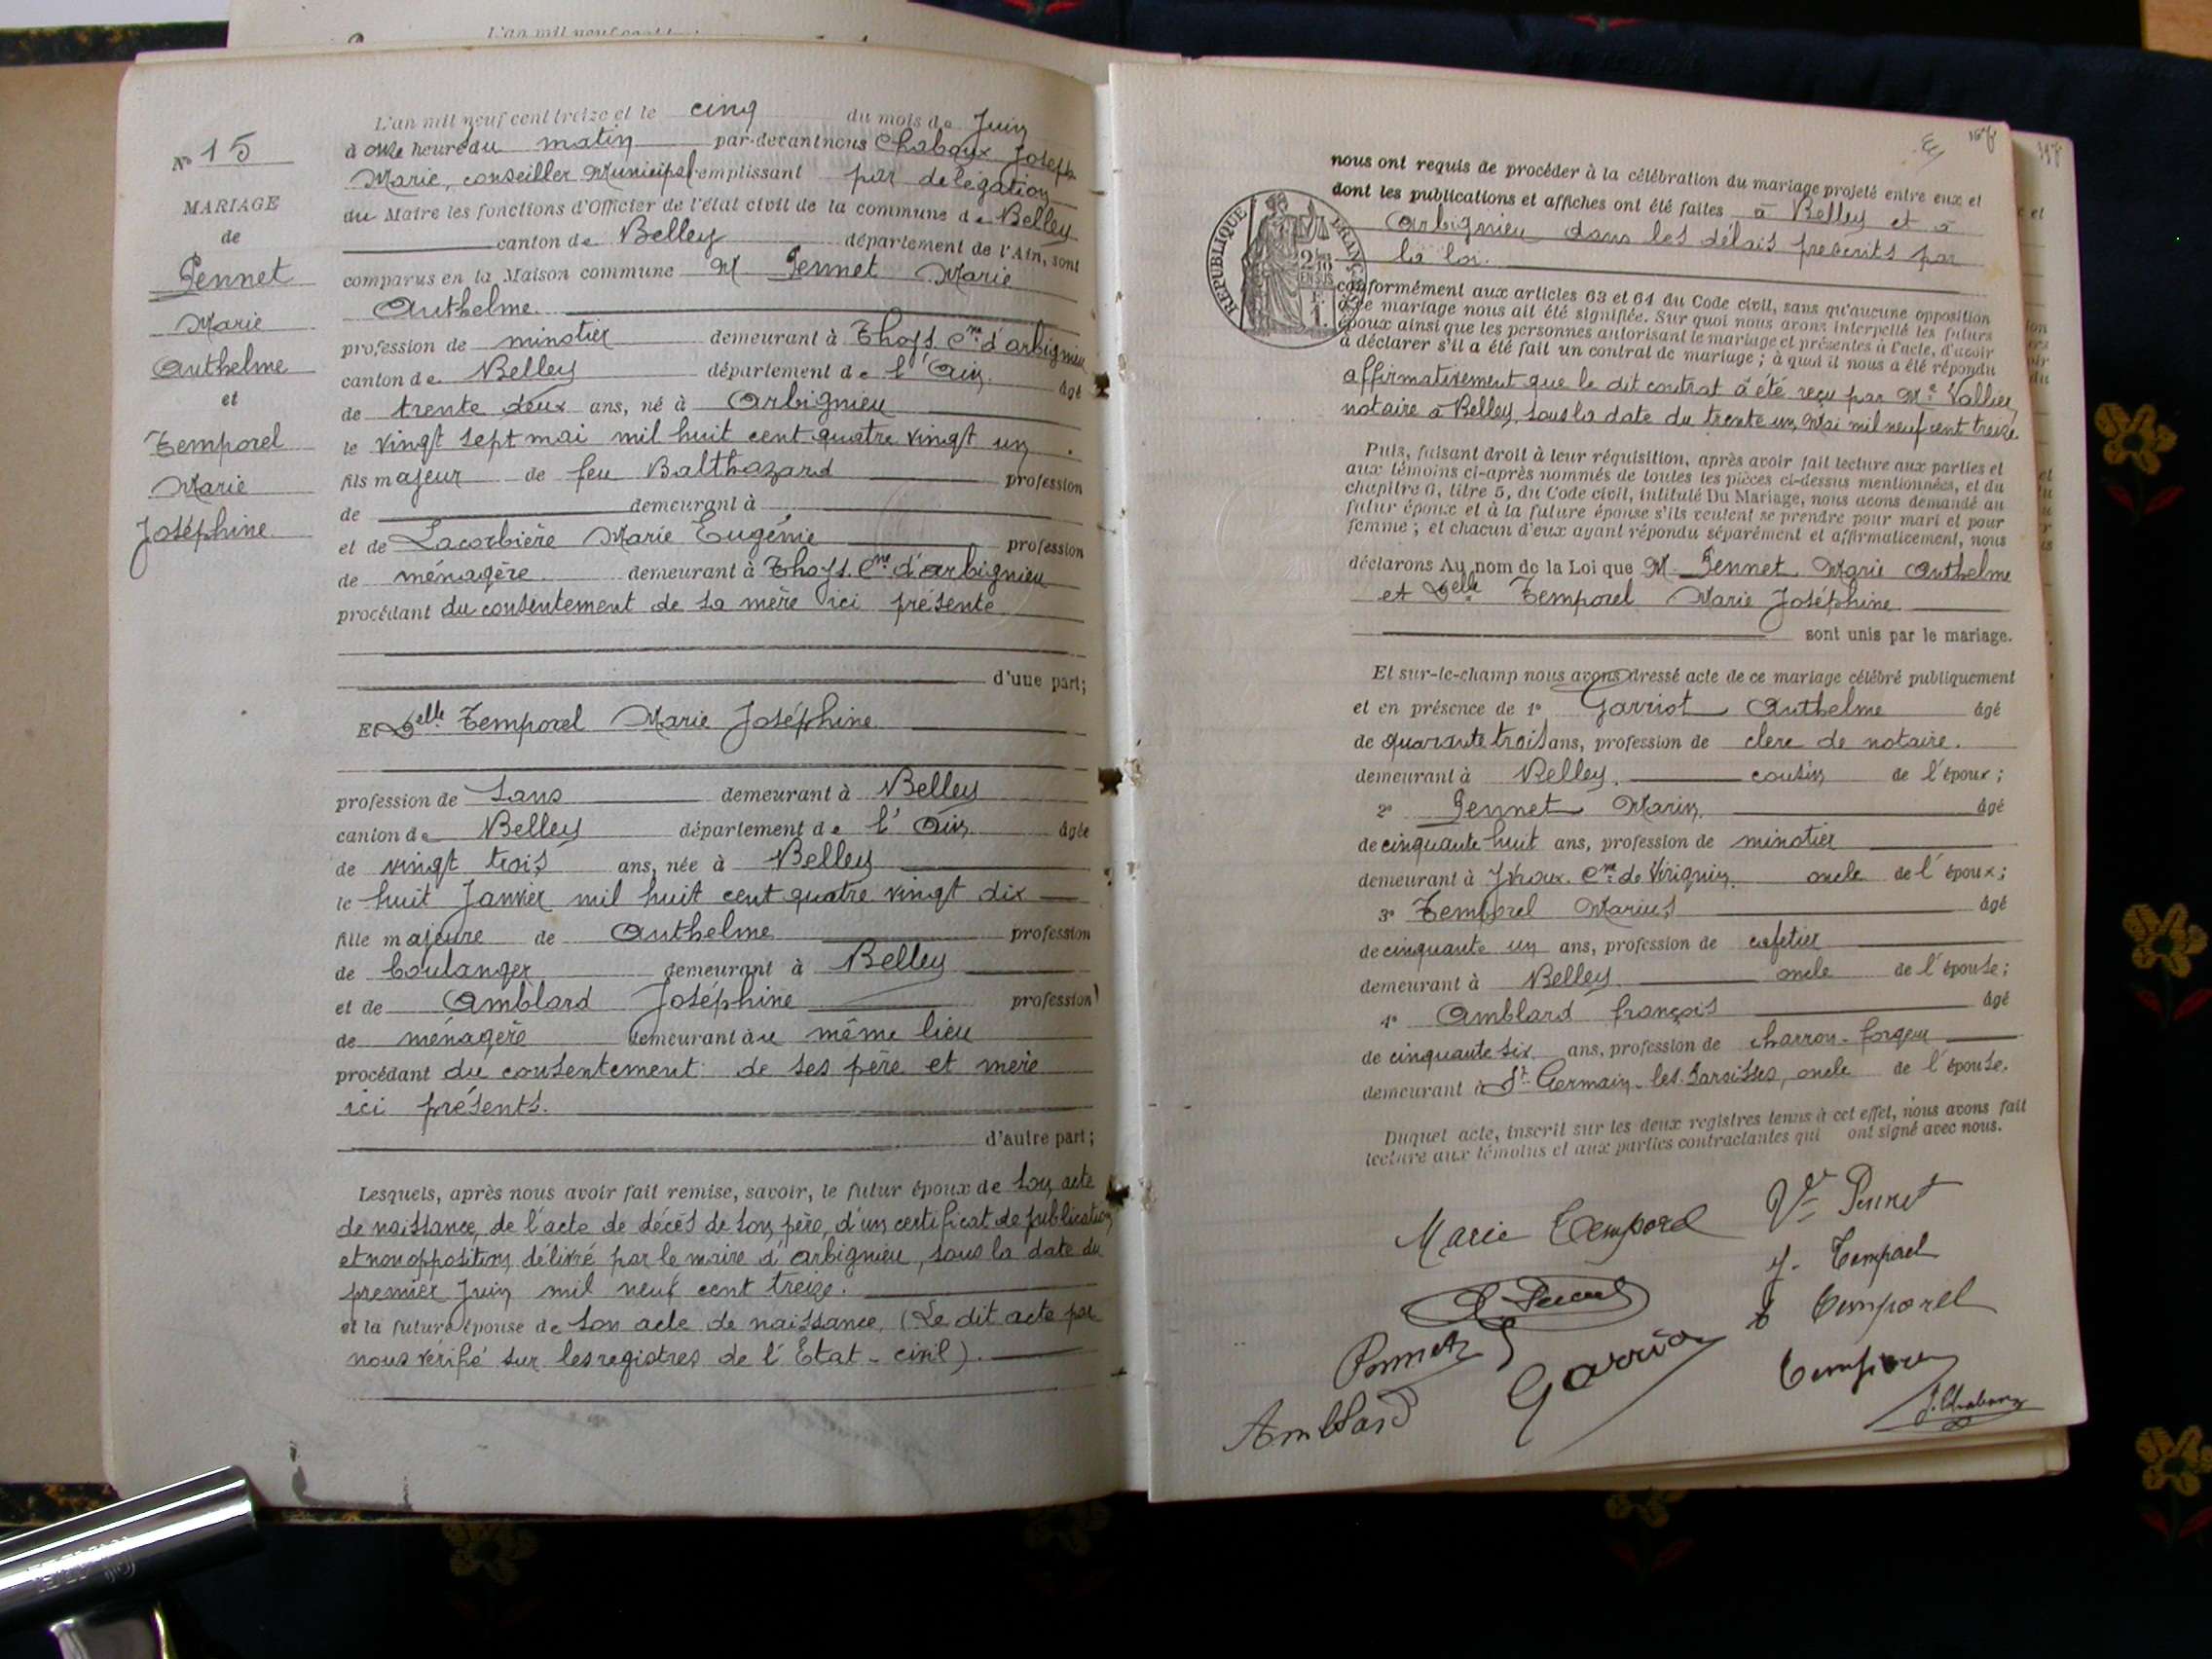 L'an mil neuf cent
Nº 15
MARIAGE
de
Pennet
Marie
Anthelme
et
Temporel
Marie
Joséphine
L'an mil neuf cent treize et le cinq du mois de Juin
à onze heure du matin par-devant nous Chaboux Joseph
Marie, conseiller Municipal remplissant par délégation
du Maire les fonctions d'Officier de l'état civil de la commune de Belley
canton de Belley département de l'Ain, sont
comparus en la Maison commune M Pennet Marie
Anthelme
profession de minotier demeurant à Thoys. Cne d'arbignieu
canton de Belley département de l'Ain âgé
de trente deux ans, né à Arbignieu
le vingt sept mai mil huit cent quatre vingt un.
fils majeur de feu Balthazard profession
de demeurant à
et de Lacorbière Marie Eugénie profession
de ménagère demeurant à Thoys. Cne d'arbignieu
procédant du consentement de sa mère ici présente
d'une part;
Et Delle Temporel Marie Joséphine
profession de sans demeurant à Belley
canton de Belley département de l'Ain âgée
de vingt trois ans, née à Belley
le huit Janvier mil huit cent quatre vingt dix
fille majeure de Anthelme profession
de boulanger demeurant à Belley
et de Amblard Joséphine profession
de ménagère demeurant au même lieu
procédant du consentement de ses père et mère
ici présents.
d'autre part;
Lesquels, après nous avoir fait remise, savoir, le futur époux de son acte
de naissance, de l'acte de décès de son père, d'un certificat de publication
et non opposition délivré par le maire d'arbignieu, sous la date du
premier Juin mil neuf cent treize.
et la future épouse de son acte de naissance, (Le dit acte par
nous vérifié sur les registres de l'Etat-civil).
REPUBLIQUE FRANÇAISE
nous ont requis de procéder à la célébration du mariage projeté entre eux et
dont les publications et affiches ont été faites à Belley et à
Arbignieu dans les délais prescrits par
la loi.
conformément aux articles 63 et 64 du Code civil, sans qu'aucune opposition
à ce mariage nous ait été signifiée. Sur quoi nous avons interpellé les futurs
époux ainsi que les personnes autorisant le mariage et présentes à l'acte, d'avoir
à déclarer s'il a été fait un contrat de mariage ; à quoi il nous a été répondu
affirmativement que le dit contrat a été reçu par Me Vallier,
notaire à Belley, sous la date du trente un Mai mil neuf cent treize.
Puis, faisant droit à leur réquisition, après avoir fait lecture aux parties et
aux témoins ci-après nommés de toutes les pièces ci-dessus mentionnées, et du
chapitre 6, titre 5, du Code civil, intitulé Du Mariage, nous avons demandé au
futur époux et à la future épouse s'ils veulent se prendre pour mari et pour
femme ; et chacun d'eux ayant répondu séparément et affirmativement, nous
déclarons Au nom de la Loi que M. Pennet Marie Anthelme
et Delle Temporel Marie Joséphine
sont unis par le mariage.
Et sur-le-champ nous avons dressé acte de ce mariage célébré publiquement
et en présence de 1º Garriot Anthelme âgé
de quarante trois ans, profession de clerc de notaire.
demeurant à Belley. cousin de l'époux ;
2º Pennet Marin âgé
de cinquante huit ans, profession de minotier
demeurant à Cne de Virignin. oncle de l'époux ;
3º Temporel Marius âgé
de cinquante un ans, profession de cafetier
demeurant à Belley oncle de l'épouse ;
4º Amblard françois âgé
de cinquante six ans, profession de charron-forgeur
demeurant à St Germain-les-Paroisses, oncle de l'épouse.
Duquel acte, inscrit sur les deux registres tenus à cet effet, nous avons fait
lecture aux témoins et aux parties contractantes qui ont signé avec nous.
Marie Temporel Vve Pennet
J. Temporel
Temporel
Garriot
Amblard
J. Chaboux